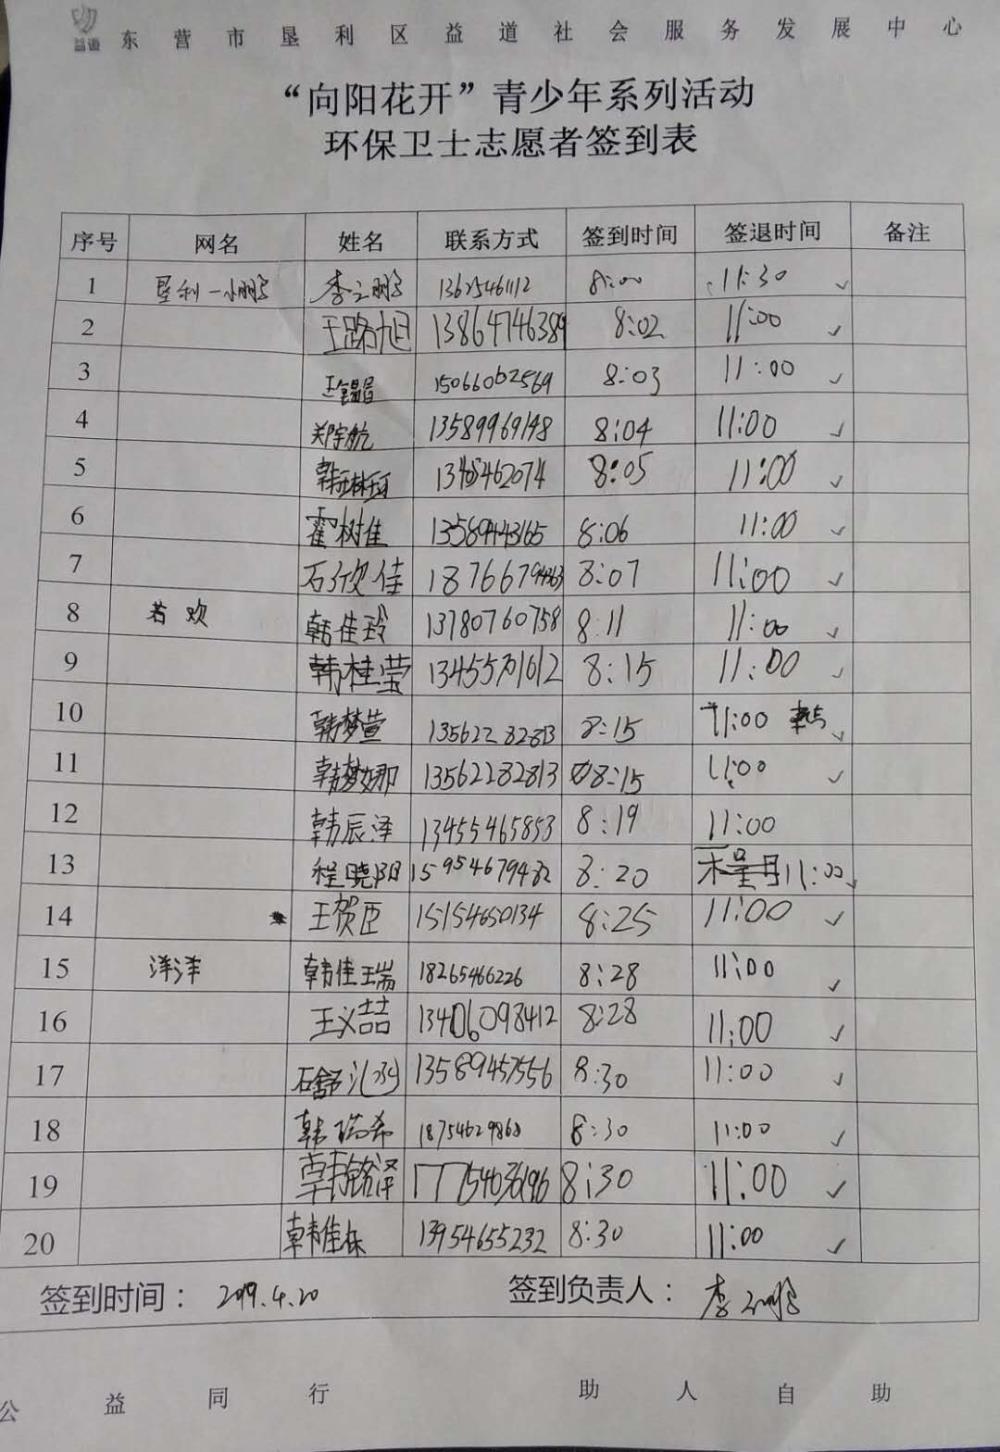 益道 东营市垦利区益道社会服务发展中心
“向阳花开”青少年系列活动
环保卫士志愿者签到表
序号 网名 姓名 联系方式 签到时间 签退时间 备注
1 垦利一小鹏 李 鹏 13625461112 8:00 11:30 ✓
2 王路旭 13864746389 8:02 11:00 ✓
3 15066002569 8:03 11:00 ✓
4 郑宇航 13589969198 8:04 11:00 ✓
5 韩琳珂 8:05 11:00 ✓
6 霍树佳 8:06 11:00 ✓
7 石欣佳 8:07 11:00 ✓
8 若欢 韩佳玲 13780760758 8:11 11:00 ✓
9 韩桂莹 13455701612 8:15 11:00 ✓
10 韩梦萱 13562282813 8:15 11:00 ✓
11 韩梦娜 13562282813 8:15 11:00 ✓
12 韩辰泽 13455465853 8:19 11:00
13 程晓阳 15954679482 8:20 11:00 ✓
14 王贺臣 15154650134 8:25 11:00 ✓
15 洋洋 韩佳瑞 18265466226 8:28 11:00 ✓
16 王义喆 13406098412 8:28 11:00 ✓
17 石舒 13589457556 8:30 11:00 ✓
18 韩 希 18754629868 8:30 11:00 ✓
19 韩铭泽 17754636196 8:30 11:00 ✓
20 韩佳栋 13954655232 8:30 11:00 ✓
签到时间： 2019.4.20 签到负责人： 李 鹏
公益同行 助人自助